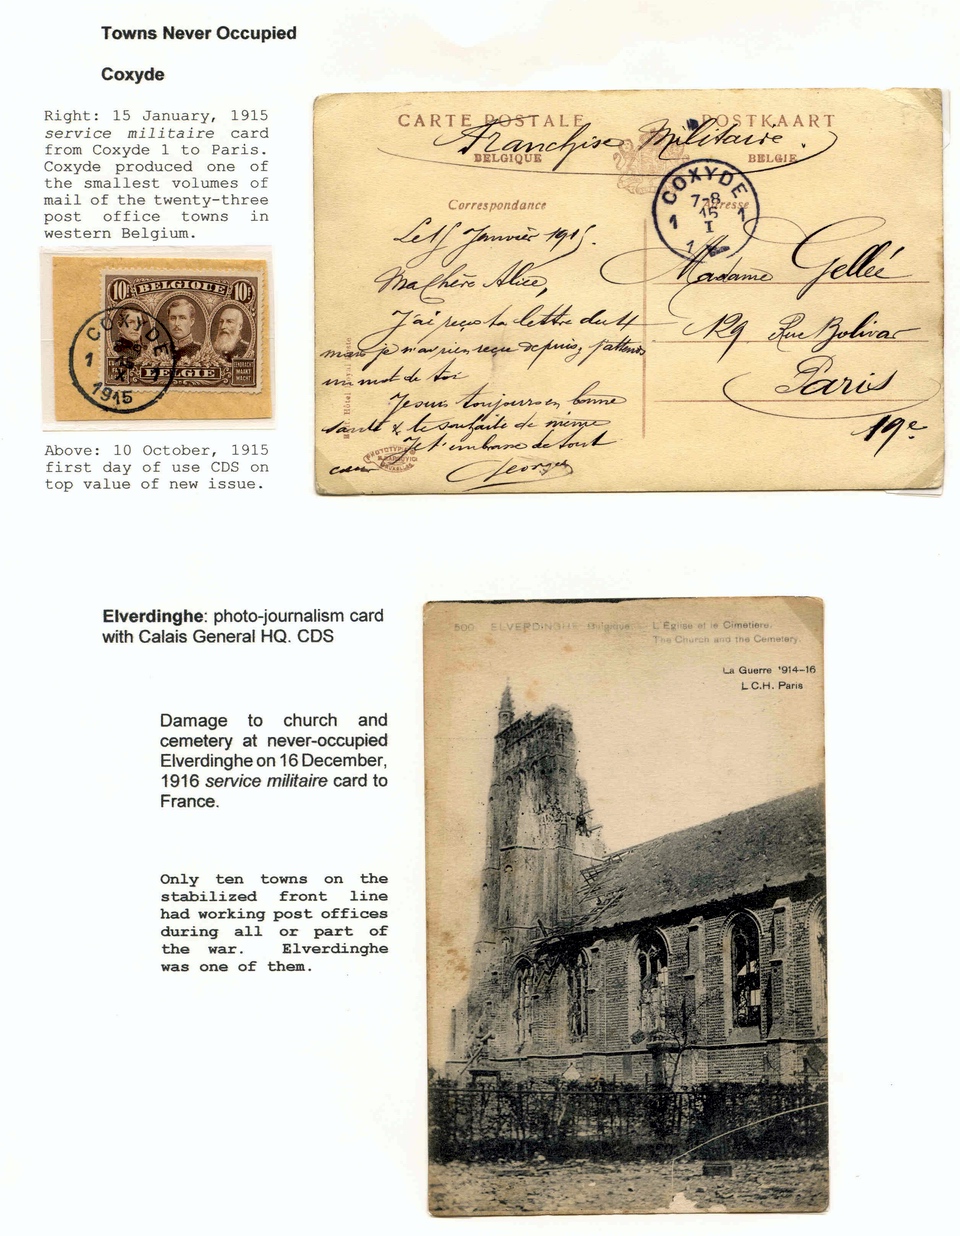 Towns Never Occupied
Coxyde
Right: 15 January, 1915
service militaire card
from Coxyde 1 to Paris.
Coxyde produced one of
the smallest volumes of
mail of the twenty-three
post office towns in
western Belgium.
10c BELGIQUE 10c
BELGIË
EENDRACHT
MAAKT
MACHT
COXYDE
1 1
X
1915
Above: 10 October, 1915
first day of use CDS on
top value of new issue.
CARTE POSTALE POSTKAART
Franchise Militaire.
BELGIQUE BELGIE
COXYDE
7-8
1 15 1
I
Correspondance Adresse
Le 15 Janvier 1915.
Ma Chère Alice,
J'ai reçu ta lettre du 4
mais je n'ai rien reçu depuis, j'attends
un mot de toi
Je suis toujours en bonne
santé & te souhaite de même
Je t'embrasse de tout
coeur Georges
Madame Gellée
129 Rue Bolivar
Paris
19e
Elverdinghe: photo-journalism card
with Calais General HQ. CDS
Damage to church and
cemetery at never-occupied
Elverdinghe on 16 December,
1916 service militaire card to
France.
Only ten towns on the
stabilized front line
had working post offices
during all or part of
the war. Elverdinghe
was one of them.
500 ELVERDINGHE Belgique. — L'Eglise et le Cimetière.
The Church and the Cemetery.
La Guerre 1914-16
L.C.H. Paris